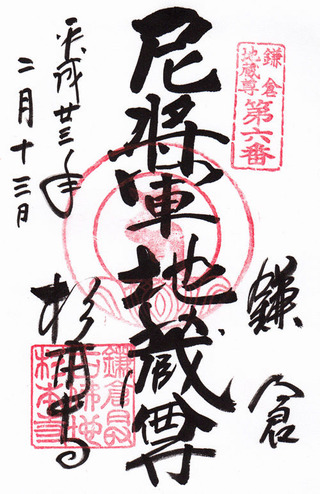 鎌倉
地蔵尊
第六番
鎌倉
尼将軍地蔵尊
平成廿三年
二月十三日
杉本寺